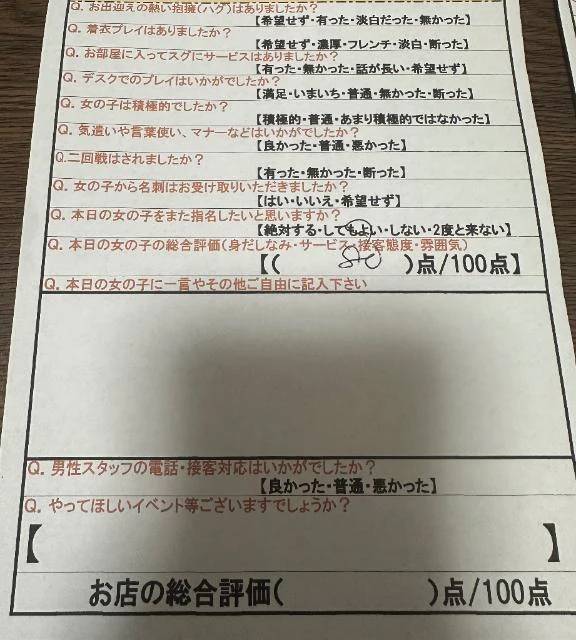 Q. お出迎えの熱い抱擁(ハグ)はありましたか?
【希望せず・有った・淡白だった・無かった】
Q. 着衣プレイはありましたか?
【希望せず・濃厚・フレンチ・淡白・断った】
Q. お部屋に入ってスグにサービスはありましたか?
【有った・無かった・話が長い・希望せず】
Q. デスクでのプレイはいかがでしたか?
【満足・いまいち・普通・無かった・断った】
Q. 女の子は積極的でしたか?
【積極的・普通・あまり積極的ではなかった】
Q. 気遣いや言葉使い、マナーなどはいかがでしたか?
【良かった・普通・悪かった】
Q.二回戦はされましたか?
【有った・無かった・断った】
Q. 女の子から名刺はお受け取りいただきましたか?
【はい・いいえ・希望せず】
Q. 本日の女の子をまた指名したいと思いますか?
【絶対する・してもよい・しない・2度と来ない】
Q. 本日の女の子の総合評価(身だしなみ・サービス・接客態度・雰囲気)
【( )点/100点】
Q. 本日の女の子に一言やその他ご自由に記入下さい
Q. 男性スタッフの電話・接客対応はいかがでしたか?
【良かった・普通・悪かった】
Q. やってほしいイベント等ございますでしょうか?
【 】
お店の総合評価( )点/100点